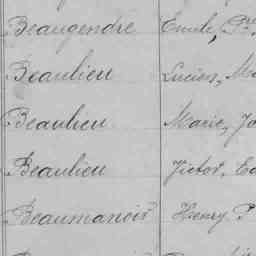 Beaugendre Emile, P
Beaulieu Lucien, Ma
Beaulieu Marie, Jo
Beaulieu Victor, Ed
Beaumanoir Henry P